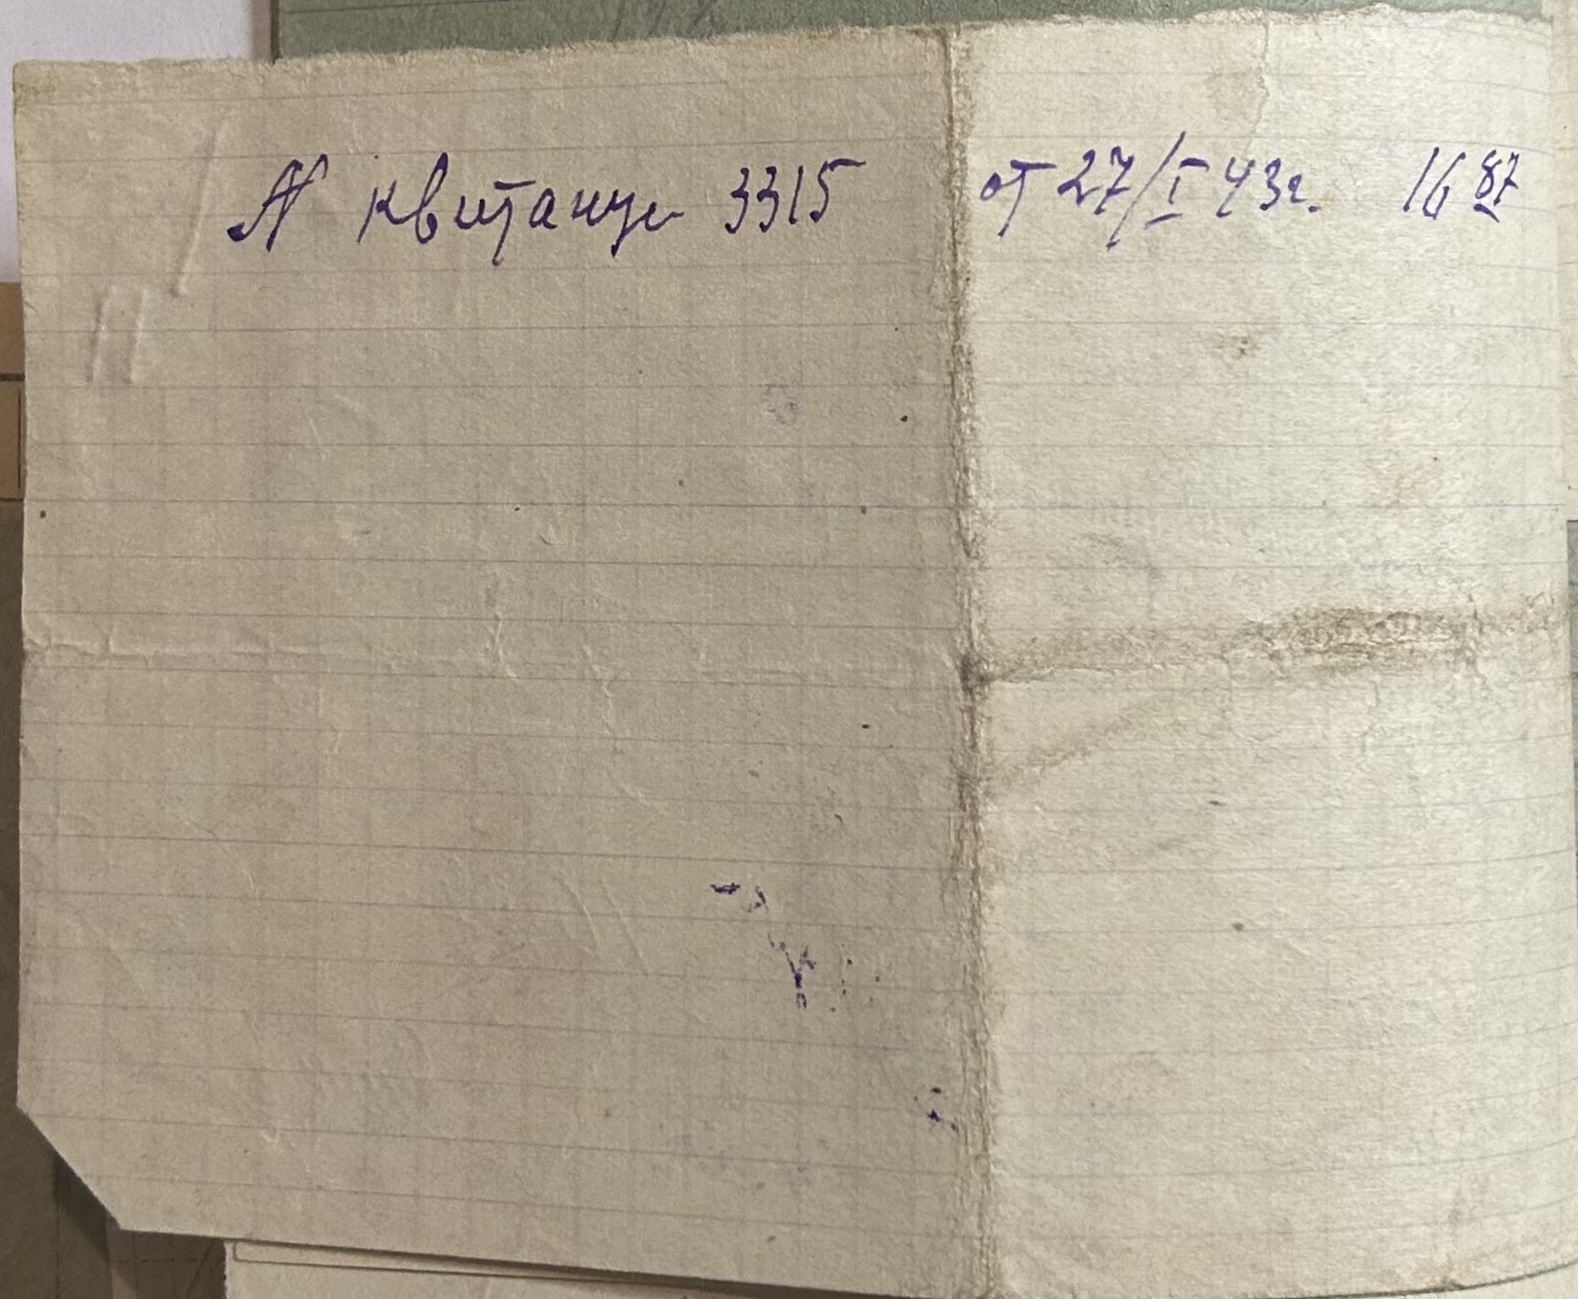 N квитанци 3315 от 27/I 43г. 16 87